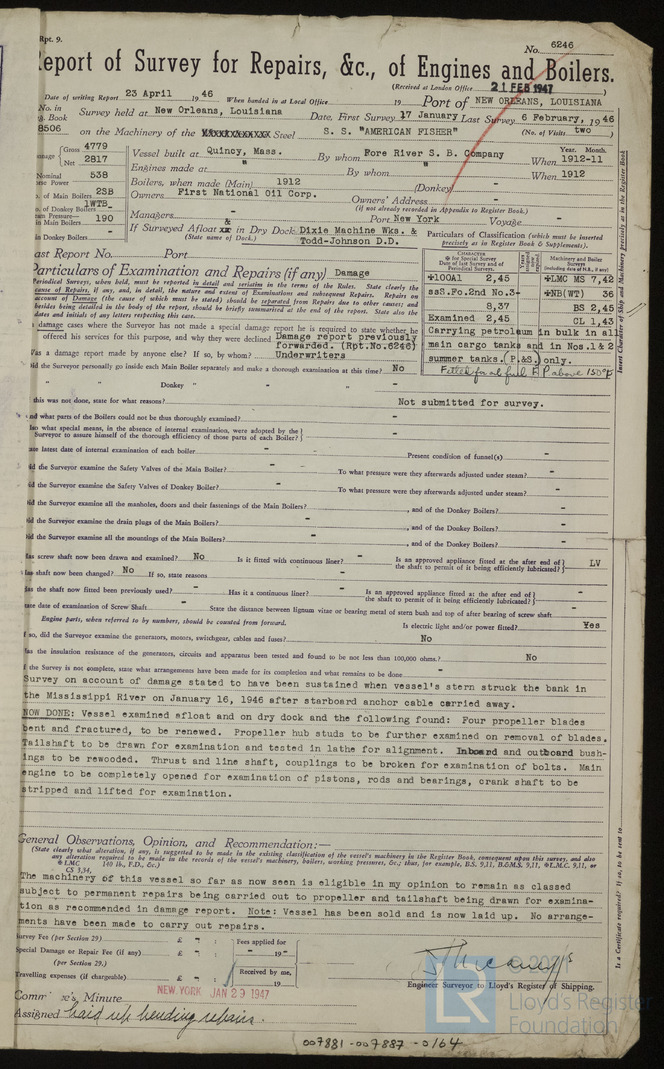 Rpt. 9.
No. 6246
Report of Survey for Repairs, &c., of Engines and Boilers.
(Received at London Office 21 FEB 1947)
Date of writing Report 23 April 1946 When handed in at Local Office 19 Port of NEW ORLEANS, LOUISIANA
No. in Survey held at New Orleans, Louisiana Date, First Survey 17 January Last Survey 6 February, 1946
g. Book
8506 on the Machinery of the XXXXXXXXXXX Steel S. S. "AMERICAN FISHER" (No. of Visits two)
Gross 4779
Net 2817
Vessel built at Quincy, Mass. By whom Fore River S. B. Company When 1912-11
Year. Month.
Engines made at " By whom " When 1912
Nominal Horse Power 538
Boilers, when made (Main) 1912 (Donkey) -
No. of Main Boilers 2SB
Owners First National Oil Corp. Owners' Address -
(if not already recorded in Appendix to Register Book.)
No. of Donkey Boilers 1WTB
Managers - Port New York Voyage -
Steam Pressure— in Main Boilers 190
in Donkey Boilers -
If Surveyed Afloat & xx in Dry Dock Dixie Machine Wks. & Todd-Johnson D.D.
(State name of Dock.)
Particulars of Classification (which must be inserted precisely as in Register Book & Supplements).
Last Report No. Port
Particulars of Examination and Repairs (if any) Damage
Periodical Surveys, when held, must be reported in detail and seriatim in the terms of the Rules. State clearly the
cause of Repairs, if any, and, in detail, the nature and extent of Examinations and subsequent Repairs. Repairs on
account of Damage (the cause of which must be stated) should be separated from Repairs due to other causes; and
besides being detailed in the body of the report, should be briefly summarised at the end of the report. State also the
dates and initials of any letters respecting this case.
CHARACTER
for Special Survey
Date of last Survey and of
Periodical Surveys.
Machinery and Boiler
Surveys
(including date of N.B., if any)
+100A1 2,45 +LMC MS 7,42
ssS.Fo.2nd No.3- +NB(WT) 36
8,37 BS 2,45
Examined 2,45 CL 1,43
Carrying petroleum in bulk in all
main cargo tanks and in Nos.1 & 2
summer tanks.(P.&S.) only.
Fitted for oil fuel F.P above 150°F
In damage cases where the Surveyor has not made a special damage report he is required to state whether he
offered his services for this purpose, and why they were declined Damage report previously
forwarded. (Rpt.No.6246)
Was a damage report made by anyone else? If so, by whom? Underwriters
Did the Surveyor personally go inside each Main Boiler separately and make a thorough examination at this time? No
" " Donkey " " " " -
If this was not done, state for what reasons? Not submitted for survey.
And what parts of the Boilers could not be thus thoroughly examined? -
Also what special means, in the absence of internal examination, were adopted by the
Surveyor to assure himself of the thorough efficiency of those parts of each Boiler? -
State latest date of internal examination of each boiler - Present condition of funnel(s) -
Did the Surveyor examine the Safety Valves of the Main Boiler? - To what pressure were they afterwards adjusted under steam? -
Did the Surveyor examine the Safety Valves of Donkey Boiler? - To what pressure were they afterwards adjusted under steam? -
Did the Surveyor examine all the manholes, doors and their fastenings of the Main Boilers? -, and of the Donkey Boilers? -
Did the Surveyor examine the drain plugs of the Main Boilers? -, and of the Donkey Boilers? -
Did the Surveyor examine all the mountings of the Main Boilers? -, and of the Donkey Boilers? -
Has screw shaft now been drawn and examined? No Is it fitted with continuous liner? - Is an approved appliance fitted at the after end of the shaft to permit of it being efficiently lubricated? LV
Has shaft now been changed? No If so, state reasons -
Has the shaft now fitted been previously used? - Has it a continuous liner? - Is an approved appliance fitted at the after end of the shaft to permit of it being efficiently lubricated? -
State date of examination of Screw Shaft - State the distance between lignum vitæ or bearing metal of stern bush and top of after bearing of screw shaft -
Engine parts, when referred to by numbers, should be counted from forward. Is electric light and/or power fitted? Yes
If so, did the Surveyor examine the generators, motors, switchgear, cables and fuses? No
Has the insulation resistance of the generators, circuits and apparatus been tested and found to be not less than 100,000 ohms? No
If the Survey is not complete, state what arrangements have been made for its completion and what remains to be done
Survey on account of damage stated to have been sustained when vessel's stern struck the bank in
the Mississippi River on January 16, 1946 after starboard anchor cable carried away.
NOW DONE: Vessel examined afloat and on dry dock and the following found: Four propeller blades
bent and fractured, to be renewed. Propeller hub studs to be further examined on removal of blades.
Tailshaft to be drawn for examination and tested in lathe for alignment. Inboard and outboard bush-
ings to be rewooded. Thrust and line shaft, couplings to be broken for examination of bolts. Main
engine to be completely opened for examination of pistons, rods and bearings, crank shaft to be
stripped and lifted for examination.
General Observations, Opinion, and Recommendation:—
(State clearly what alteration, if any, is suggested to be made in the existing classification of the vessel's machinery in the Register Book, consequent upon this survey, and also
any alteration required to be made in the records of the vessel's machinery, boilers, working pressures, &c.; thus, for example, B.S. 9,11, B.&M.S. 9,11, L.M.C. 9,11, or
LMC 140 lb., F.D., &c.)
CS 3,34,
The machinery of this vessel so far as now seen is eligible in my opinion to remain as classed
subject to permanent repairs being carried out to propeller and tailshaft being drawn for examina-
tion as recommended in damage report. Note: Vessel has been sold and is now laid up. No arrange-
ments have been made to carry out repairs.
Survey Fee (per Section 29) £ - : Fees applied for
Special Damage or Repair Fee (if any) £ - : - 19 -
(per Section 29.)
Travelling expenses (if chargeable) £ - : Received by me, 19
Engineer Surveyor to Lloyd's Register of Shipping.
Committee's Minute NEW YORK JAN 29 1947
Assigned Laid up pending repairs.
Insert Character of Ship and Machinery precisely as in the Register Book
Is a Certificate required? If so, to be sent to
© 2021
LR
Lloyd's Register
Foundation
007881-007887-0164